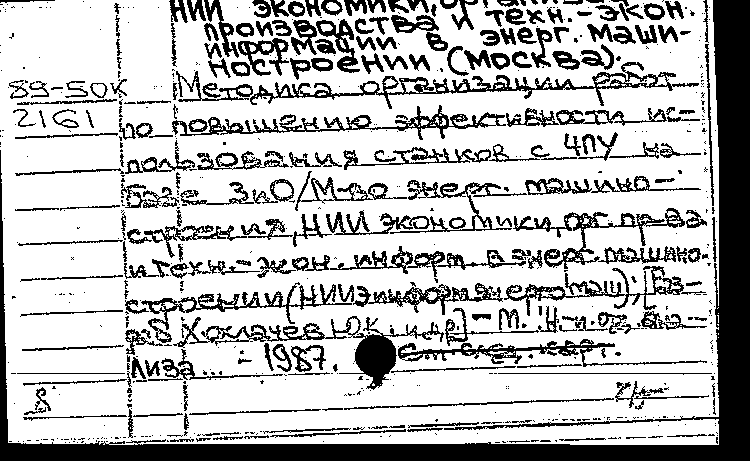 НИИ экономики, организа
производства и техн.-экон.
информации в энерг. маши-
ностроении (Москва).
89-50К Методика организации работ
2161 по повышению эффективности ис-
пользования станков с ЧПУ на
базе ЗиО/М-во энерг. машино-
строения, НИИ экономики, орг. пр-ва
и техн.-экон. информ. в энерг. машино-
строении (НИИЭинформэнергомаш); [Раз-
раб. Хохлачев Ю.К. и др.] - М.: Н.-и. от.
лиза... - 1987. См. след. карт.
8